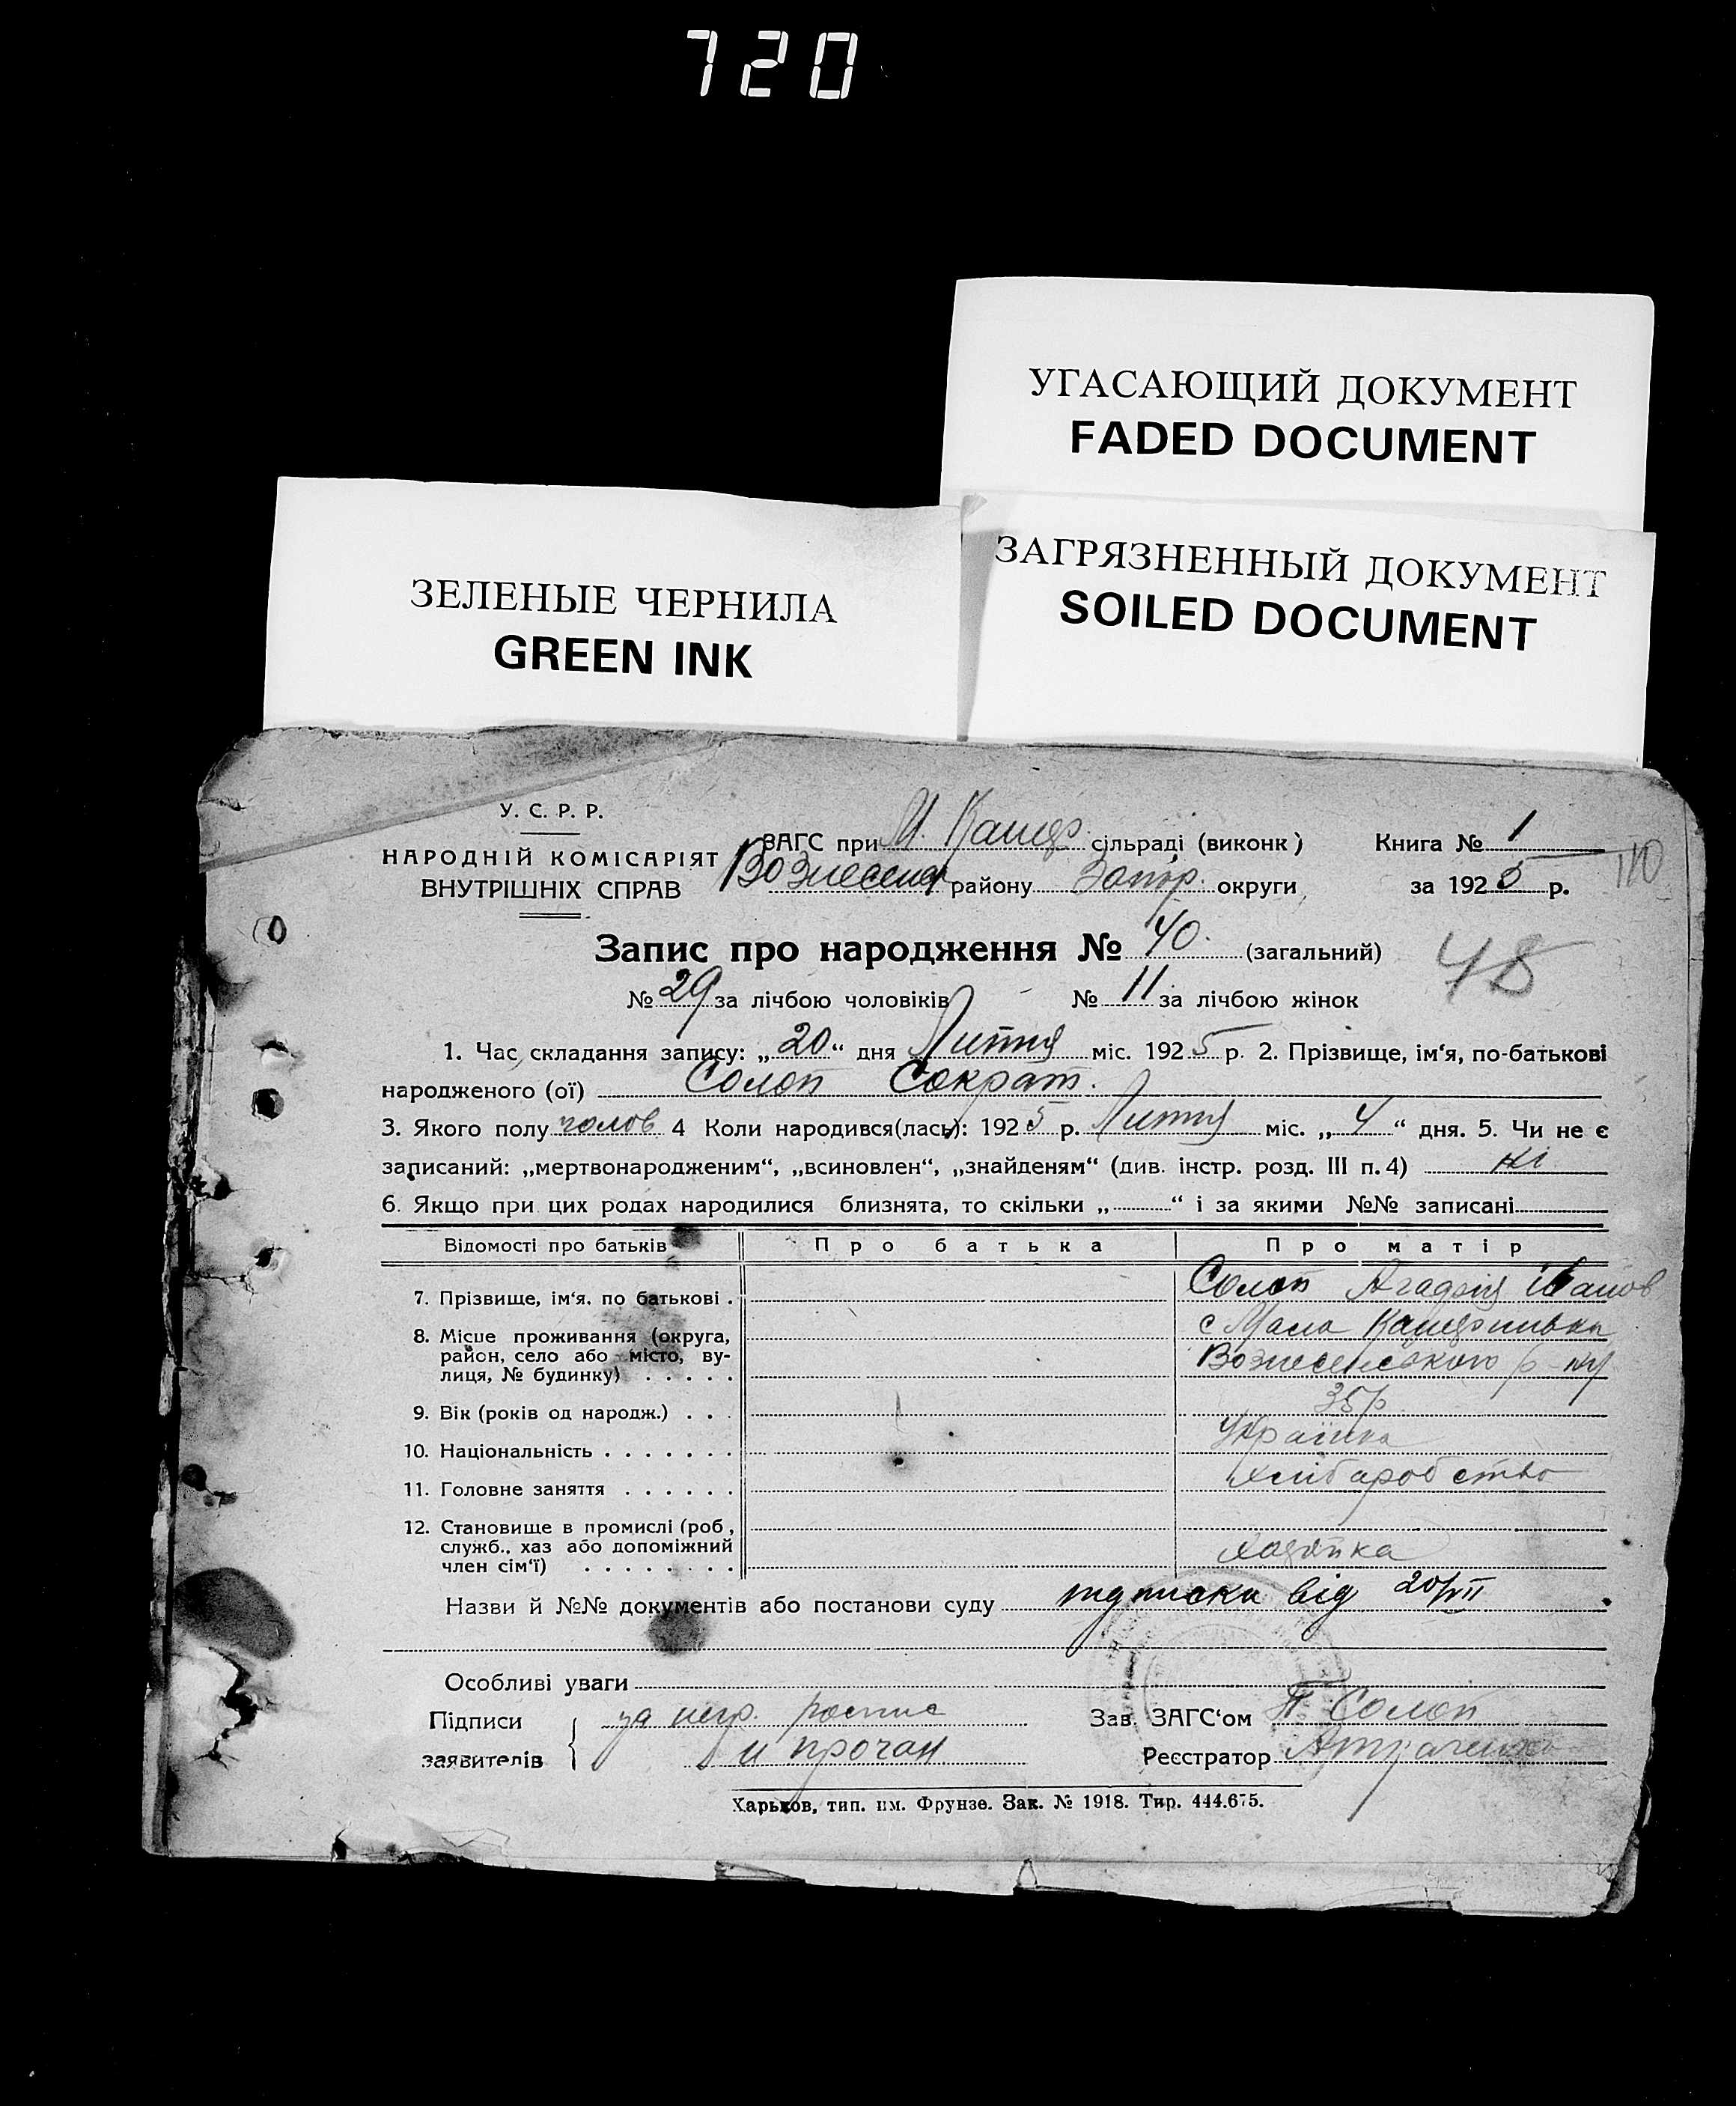 720
УГАСАЮЩИЙ ДОКУМЕНТ
FADED DOCUMENT
ЗАГРЯЗНЕННЫЙ ДОКУМЕНТ
SOILED DOCUMENT
ЗЕЛЕНЫЕ ЧЕРНИЛА
GREEN INK
У. С. Р. Р.
НАРОДНІЙ КОМІСАРІЯТ
ВНУТРІШНІХ СПРАВ
ЗАГС при М. Кащ. сільраді (виконк) Книга № 1
району Запор. округи за 1925 р.
110
Запис про народження № 40. (загальний)
48
№ 29 за лічбою чоловіків № 11 за лічбою жінок
1. Час складання запису: „20“ дня Липня міс. 1925 р. 2. Прізвище, ім‘я, по-батькові
народженого (ої) Солоп Сократ.
3. Якого полу чолов. 4 Коли народився(лась): 1925 р. Липня міс. „4“ дня. 5. Чи не є
записаний: „мертвонародженим“, „всиновлен“, „знайденям“ (див. інстр. розд. III п. 4) ні
6. Якщо при цих родах народилися близнята, то скільки „ “ і за якими №№ записані
Відомості про батьків Про батька Про матір
7. Прізвище, ім‘я, по батькові . Солоп Іванов
8. Місце проживання (округа, с Мала
район, село або місто, ву- Вознесенського р-ну
лиця, № будинку) . . . . .
9. Вік (років од народж.) . . . 35 р.
10. Національність . . . . . . . Українка
11. Головне заняття . . . . . . Хлібаробство
12. Становище в промислі (роб.,
служб., хаз або допоміжний Хазяйка
член сім‘ї) . . . . . . . .
Назви й №№ документів або постанови суду підписки від 20/VII
Особливі уваги
Підписи за негр. роспис
заявителів
Зав. ЗАГС‘ом П Солоп
Реєстратор
Харьков, тип. им. Фрунзе. Зак. № 1918. Тир. 444.675.